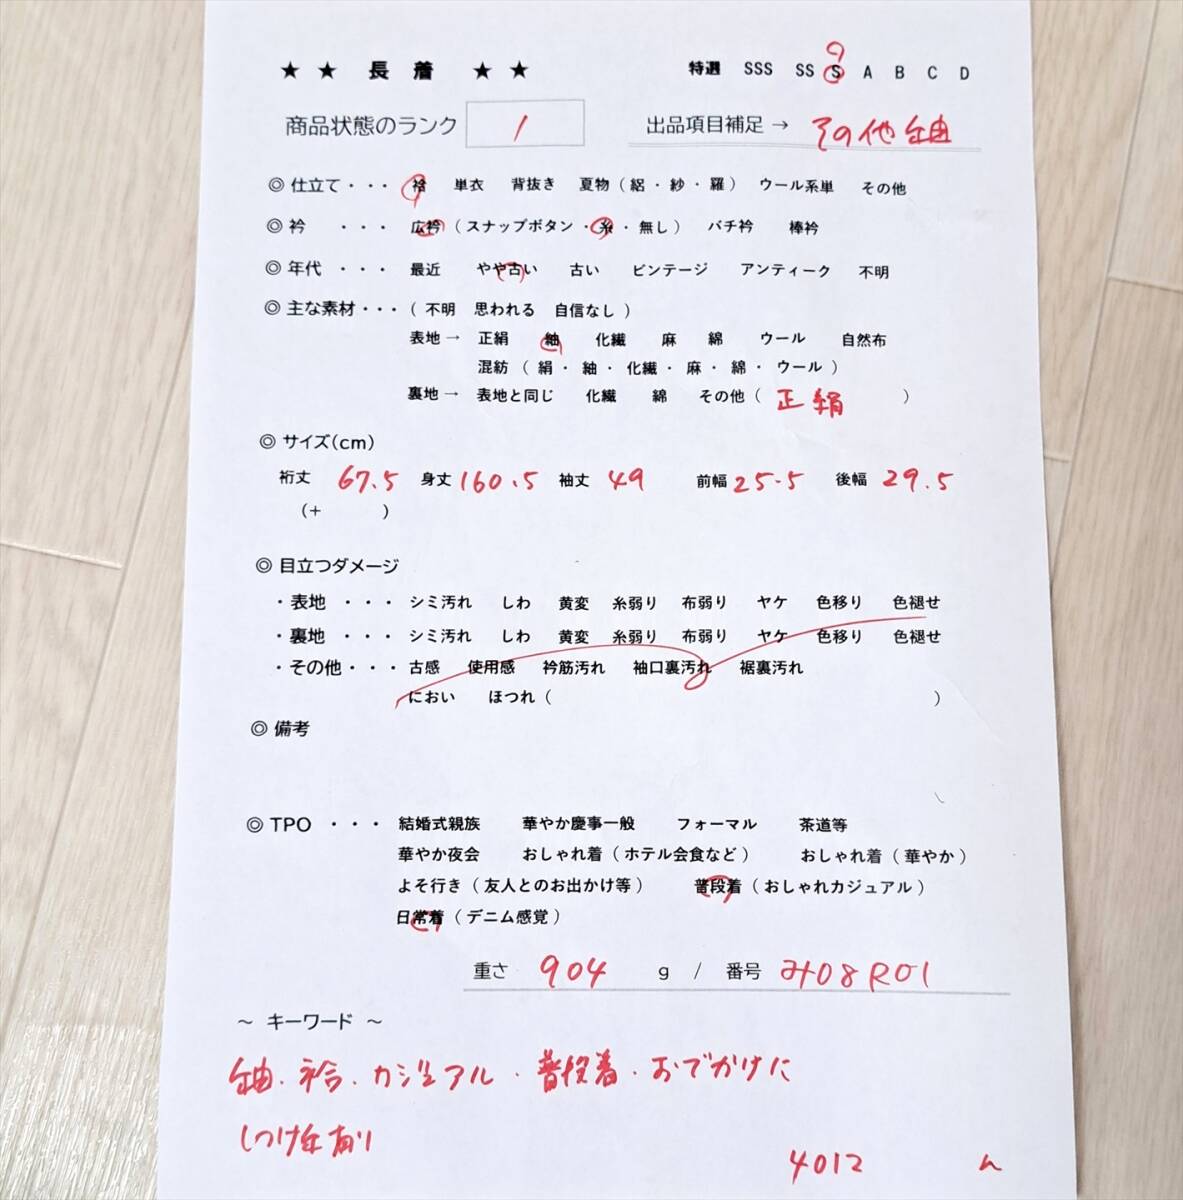 ★ ★ 長 着 ★ ★ 特選 SSS SS S A B C D
商品状態のランク 1 出品項目補足 → その他 紬
◎ 仕立て ・・・ 袷 単衣 背抜き 夏物 ( 絽 ・ 紗 ・ 羅 ) ウール系単 その他
◎ 衿 ・・・ 広衿 ( スナップボタン ・ 糸 ・ 無し ) バチ衿 棒衿
◎ 年代 ・・・ 最近 やや古い 古い ビンテージ アンティーク 不明
◎ 主な素材 ・・・ ( 不明 思われる 自信なし )
表地 → 正絹 紬 化繊 麻 綿 ウール 自然布
混紡 ( 絹 ・ 紬 ・ 化繊 ・ 麻 ・ 綿 ・ ウール )
裏地 → 表地と同じ 化繊 綿 その他 ( 正絹 )
◎ サイズ(cm)
裄丈 67.5 身丈 160.5 袖丈 49 前幅 25.5 後幅 29.5
(+ )
◎ 目立つダメージ
・ 表地 ・・・ シミ汚れ しわ 黄変 糸弱り 布弱り ヤケ 色移り 色褪せ
・ 裏地 ・・・ シミ汚れ しわ 黄変 糸弱り 布弱り ヤケ 色移り 色褪せ
・ その他 ・・・ 古感 使用感 衿筋汚れ 袖口裏汚れ 裾裏汚れ
におい ほつれ ( )
◎ 備考
◎ TPO ・・・ 結婚式親族 華やか慶事一般 フォーマル 茶道等
華やか夜会 おしゃれ着 ( ホテル会食など ) おしゃれ着 ( 華やか )
よそ行き ( 友人とのお出かけ等 ) 普段着 ( おしゃれカジュアル )
日常着 ( デニム感覚 )
重さ 904 g / 番号 み08R01
～ キーワード ～
紬・袷・カジュアル・普段着・おでかけに
しつけ糸有り
4012 ん